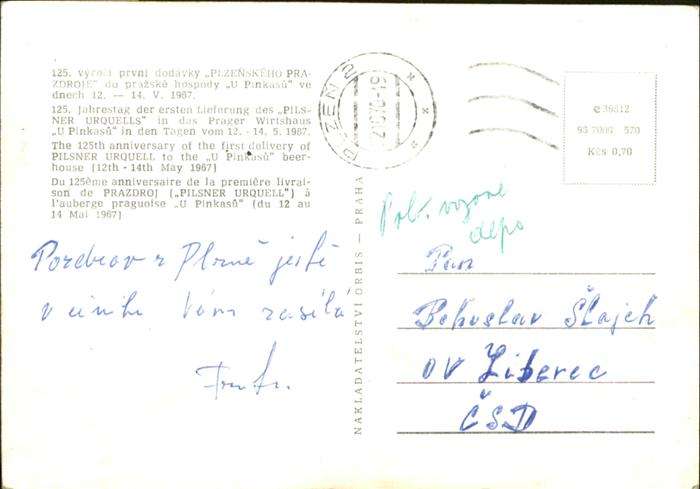 125. výročí první dodávky „PLZEŇSKÉHO PRA-
ZDROJE" do pražské hospody „U Pinkasů" ve
dnech 12. — 14. V. 1967.
125. Jahrestag der ersten Lieferung des „PILS-
NER URQUELLS" in das Prager Wirtshaus
„U Pinkasů" in den Tagen vom 12. - 14. 5. 1967.
The 125th anniversary of the first delivery of
PILSNER URQUELL to the „U Pinkasů" beer-
house (12th - 14th May 1967)
Du 125ème anniversaire de la première livrai-
son de PRAZDROJ („PILSNER URQUELL") à
l'auberge praguoise „U Pinkasů" (du 12 au
14 Mai 1967)
Pozdrav z Plzně ještě
Vám zasílá
NAKLADATELSTVÍ ORBIS — PRAHA
PLZEŇ 2
C 36812
93 70 570
Kčs 0,70
vozové
depo
Pan
Bohuslav Šlajch
OV Liberec
ČSD